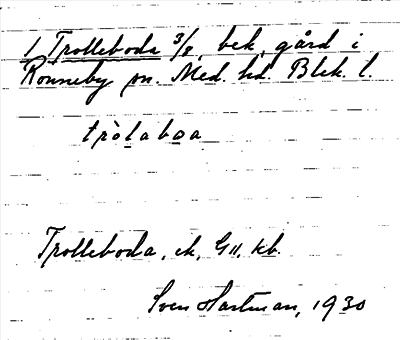 1 Trolleboda 3/8, bek. gård i
Ronneby sn. Med. hd. Blek. l.
tròlaboa
Trolleboda, ek, G11, kb.
Sven Hartman, 1930